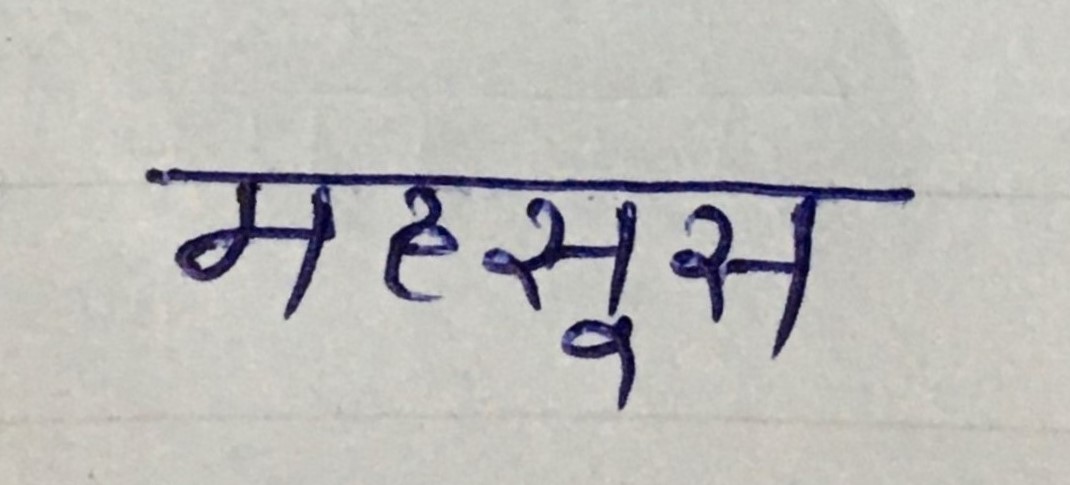 महसूस